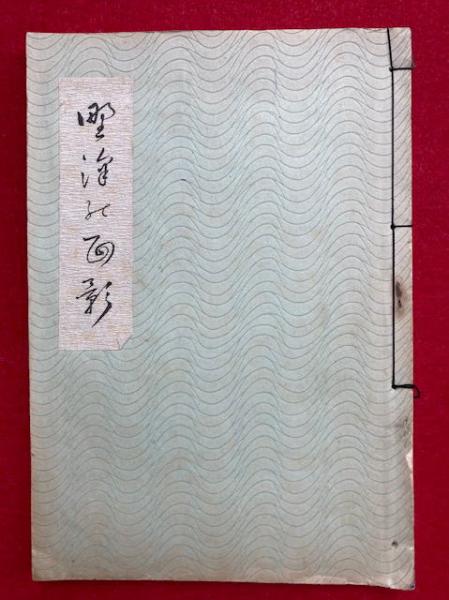 野澤の面影